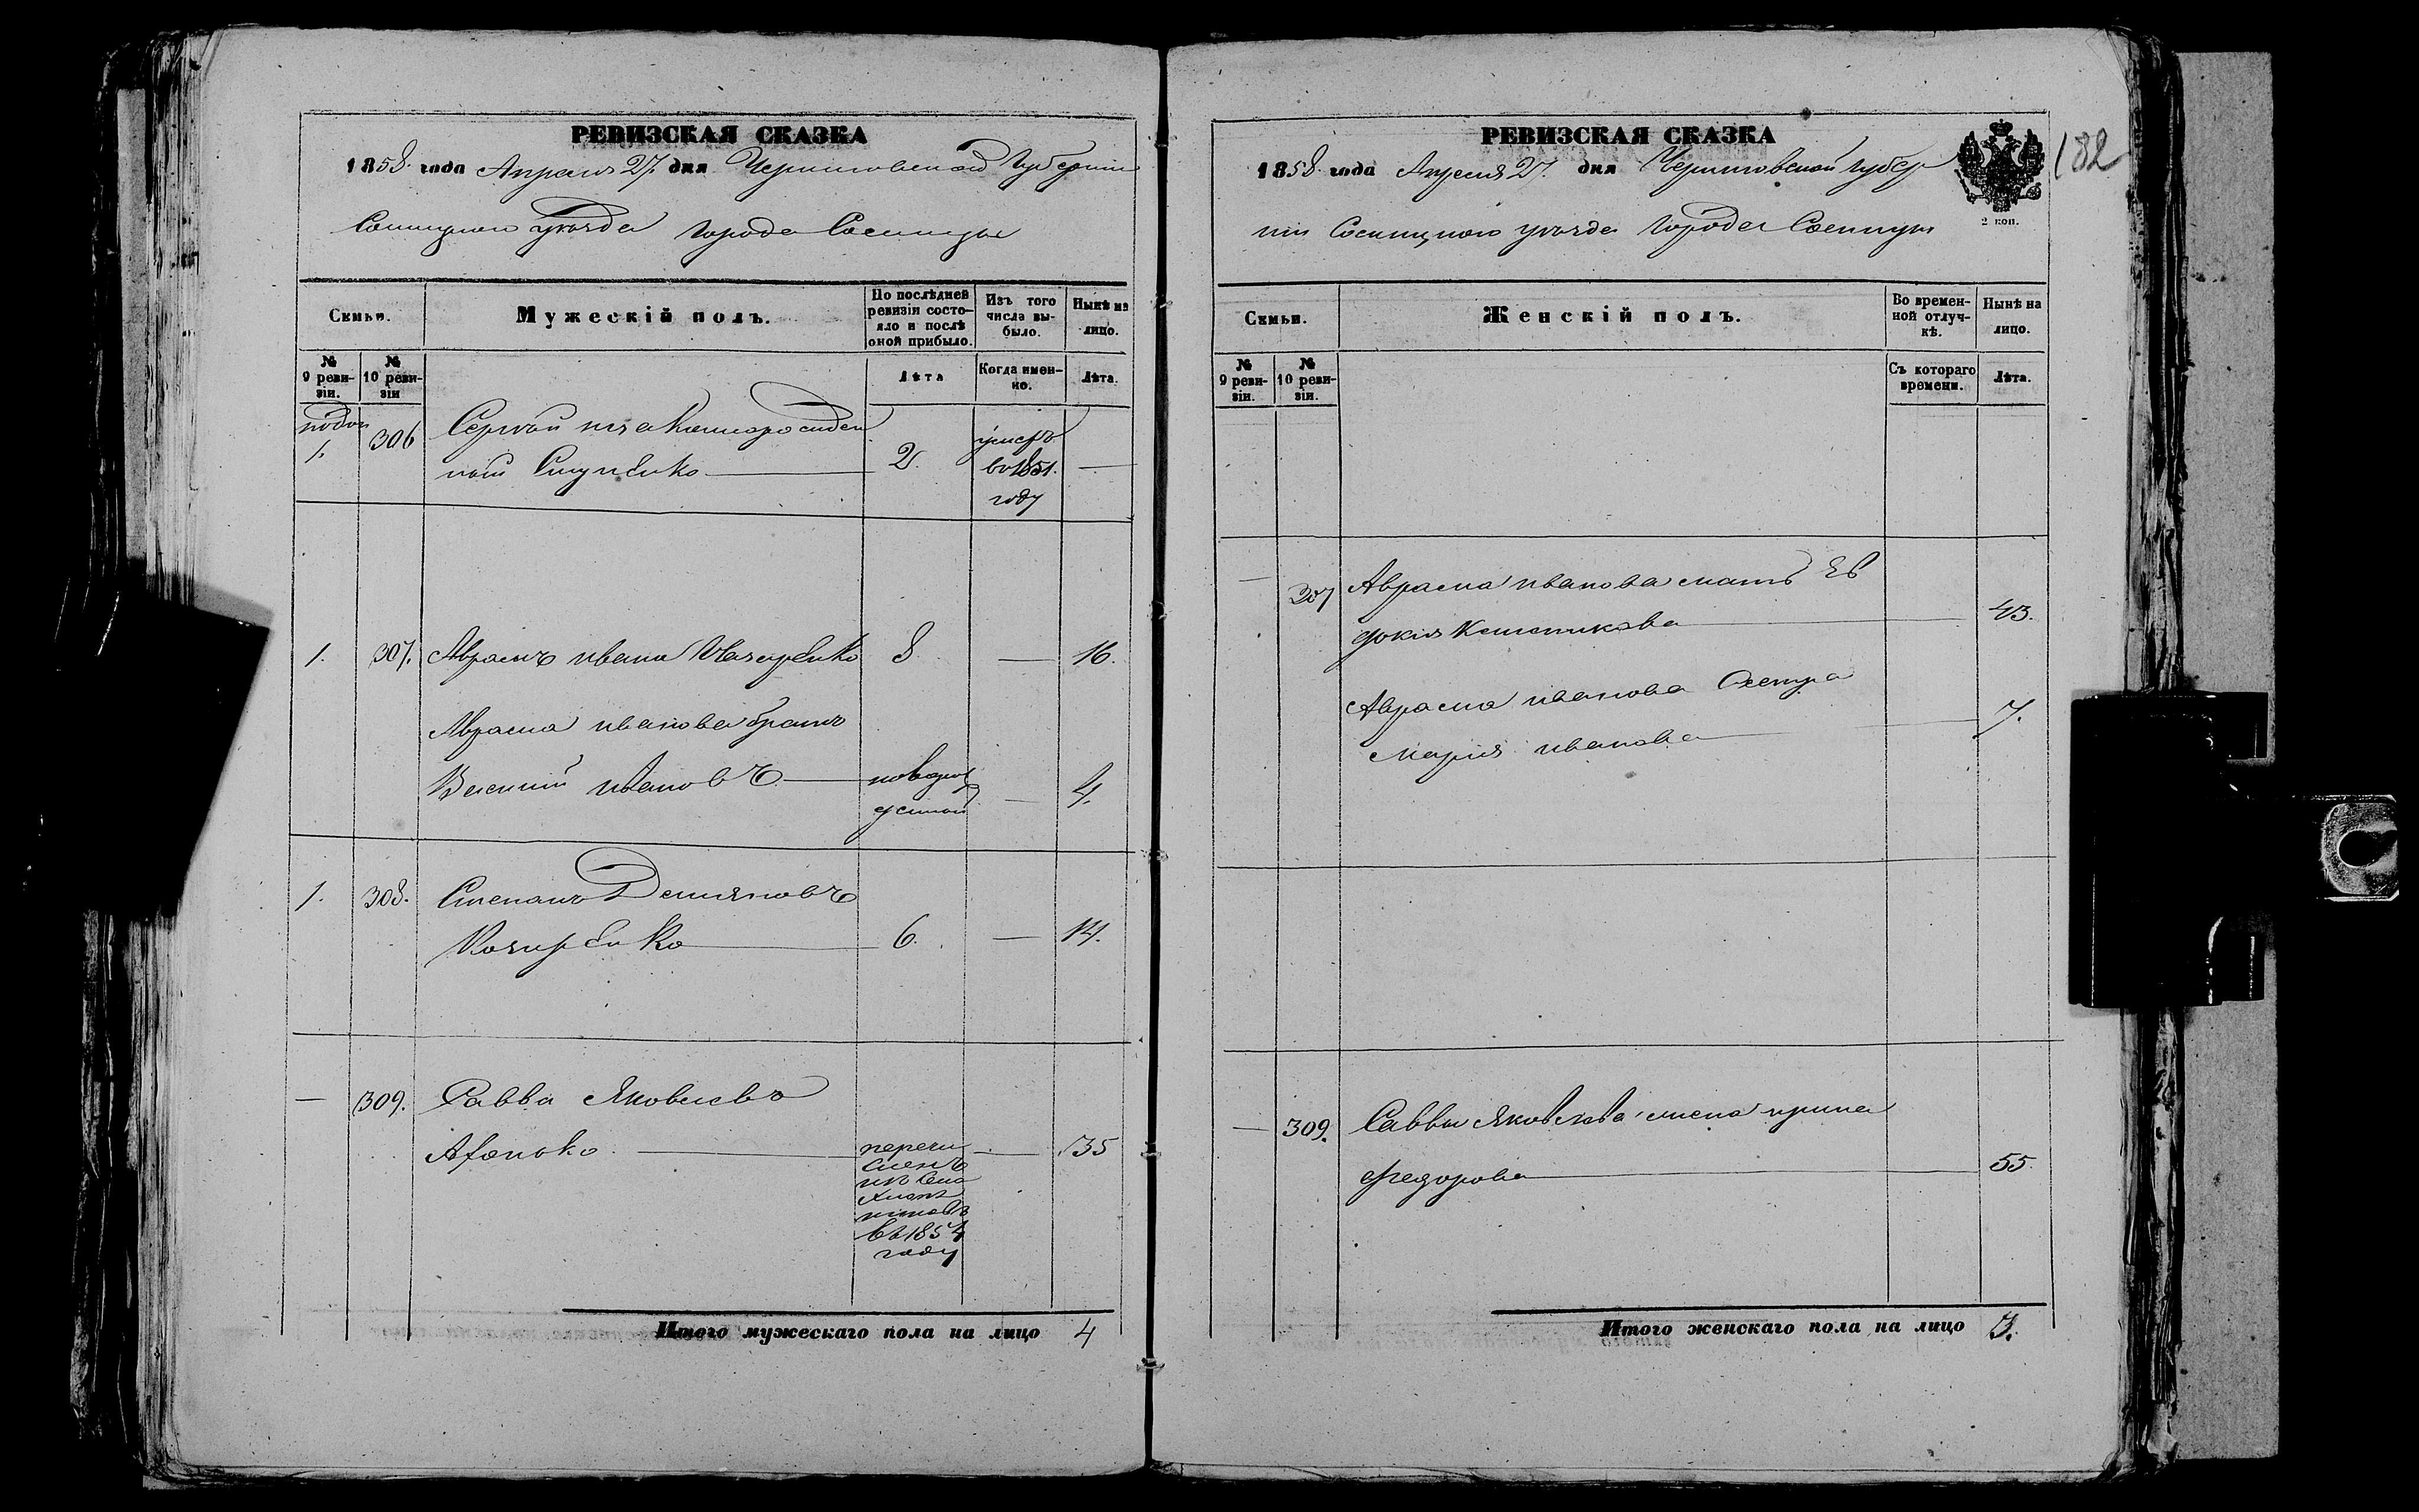 РЕВИЗСКАЯ СКАЗКА
1858. года Апреля 27. дня Черниговской Губернии
Сосницкого уезда города Сосницы
Семьи.
Мужескій полъ.
По послѣдней ревизіи состояло и послѣ оной прибыло.
Изъ того числа выбыло.
Нынѣ на лицо.
№ 9 ревизіи.
№ 10 ревизіи
Лѣта
Когда именно.
Лѣта.
1. 306 Сергей
2. умеръ
во 1851.
году
1. 307. Аврамъ Ивана 8 — 16.
Аврама Иванова братъ
Василий Ивановъ — 4.
1. 308. Степанъ Демяновъ
6. — 14.
— 309. Савва Яковлевъ
— 35
перечи
сленъ
въ 1854
году
Итого мужескаго пола на лицо 4
РЕВИЗСКАЯ СКАЗКА
1858. года Апреля 27. дня Черниговской Губер
нии Сосницкого уезда города Сосницы
2 коп.
182
Семьи.
Женскій полъ.
Во временной отлучкѣ.
Нынѣ на лицо.
№ 9 ревизіи.
№ 10 ревизіи.
Съ котораго времени.
Лѣта.
— 307 Аврама Иванова мать Ев
докия 43.
Аврама Иванова сестра
Мария Иванова 7.
— 309. Саввы Яковлева жена Ирина
Федорова 55.
Итого женскаго пола на лицо 3.